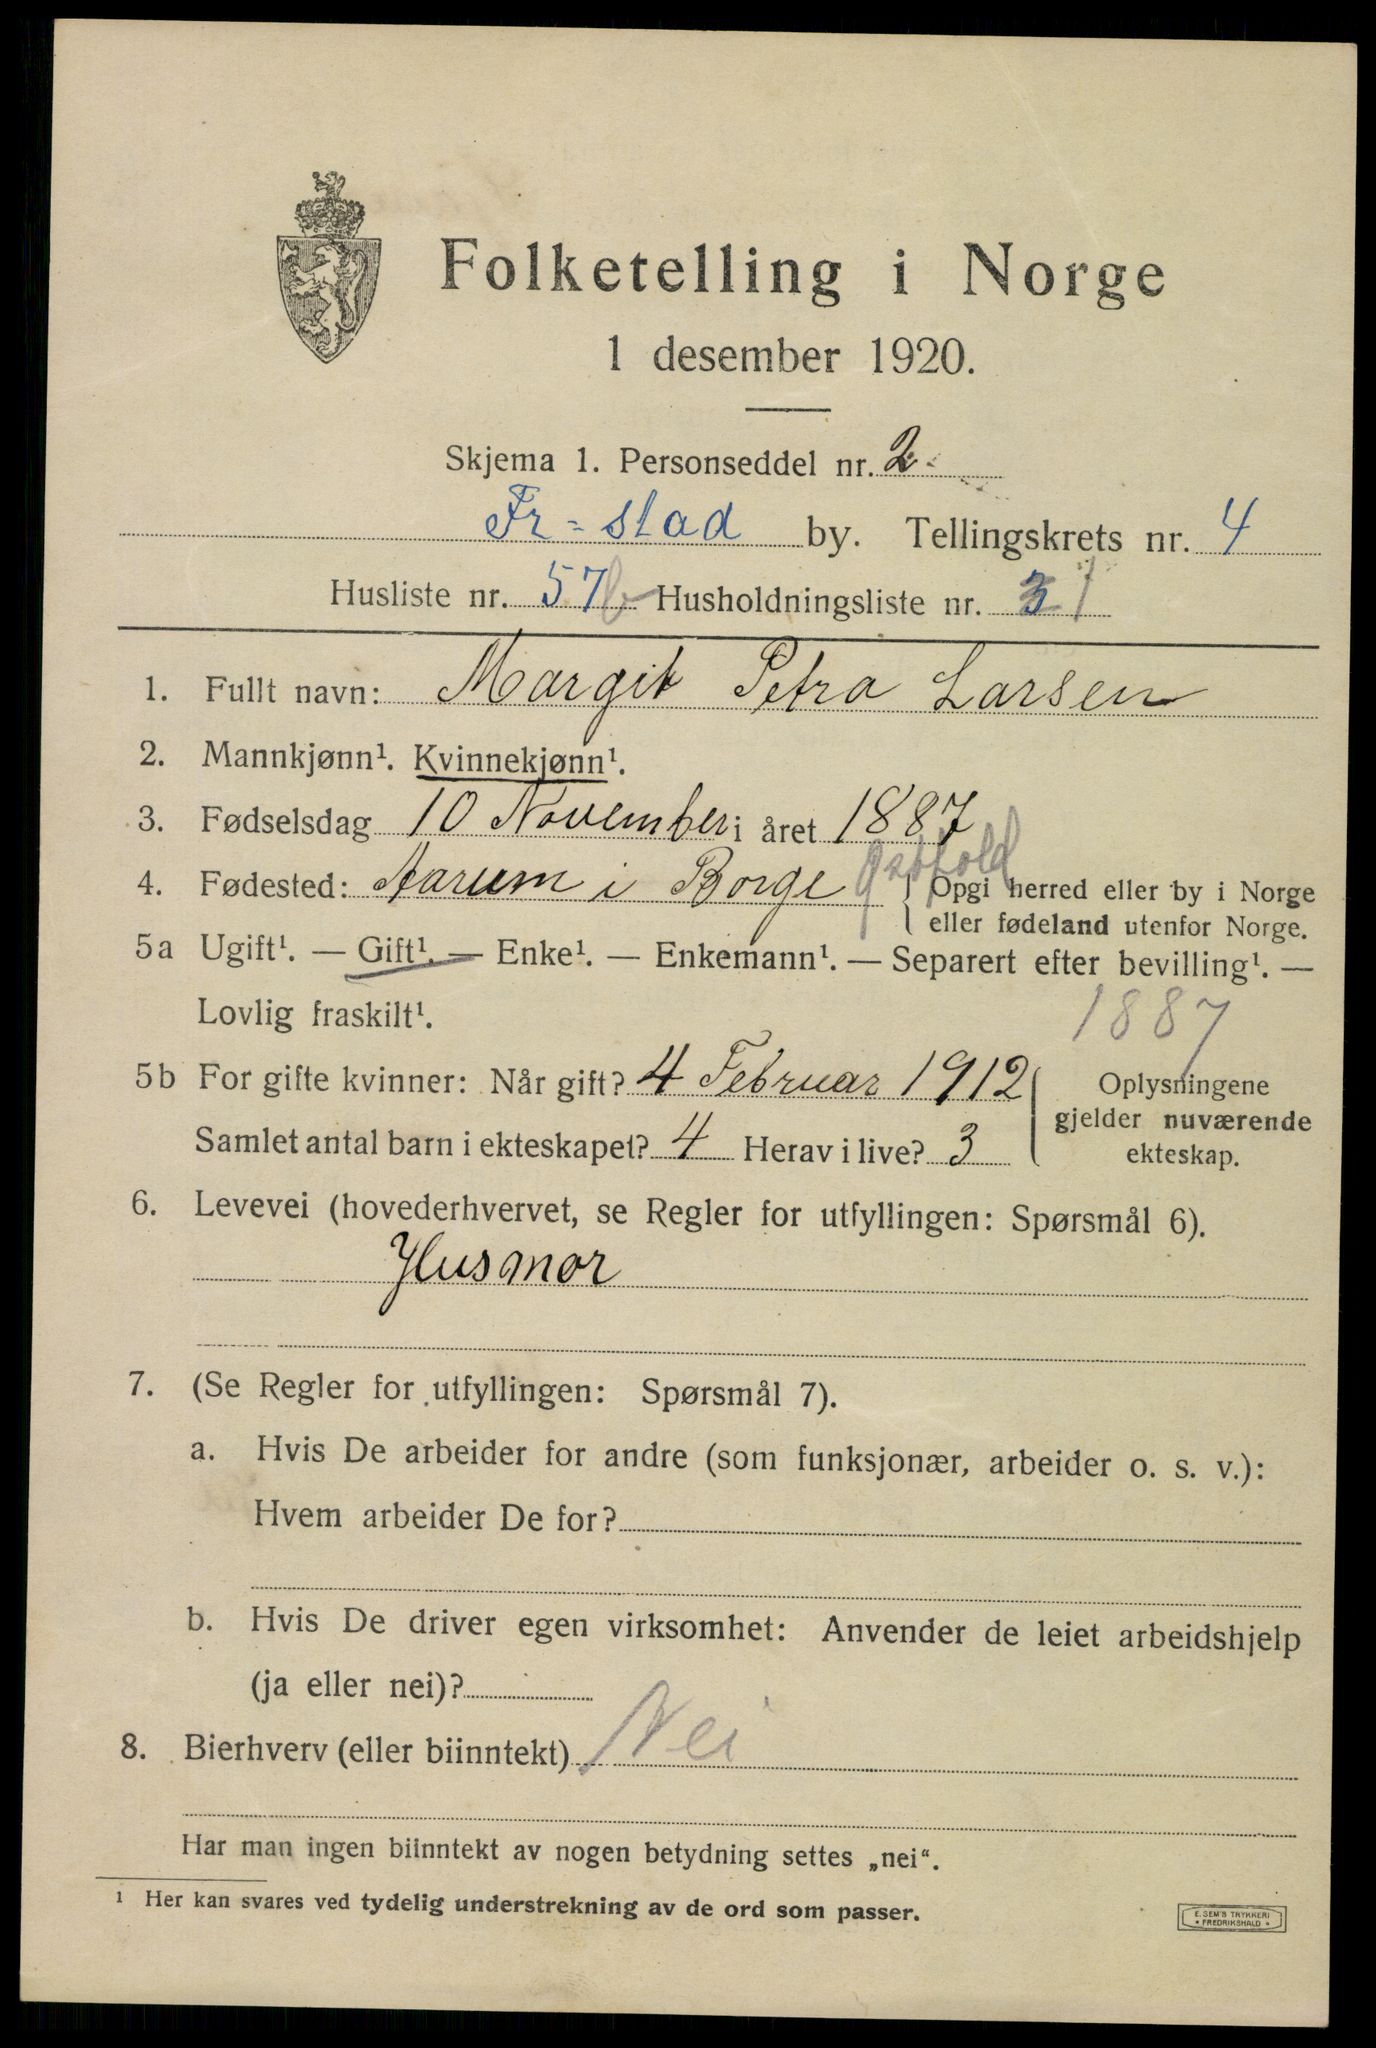 Folketelling i Norge
1 desember 1920.
Skjema 1. Personseddel nr. 2
Fr-stad by. Tellingskrets nr. 4
Husliste nr. 57b Husholdningsliste nr. 3 1
1. Fullt navn: Margit Petra Larsen
2. Mannkjønn¹. Kvinnekjønn¹.
3. Fødselsdag 10 November i året 1887
4. Fødested: Aarum i Borge Østfold Opgi herred eller by i Norge
eller fødeland utenfor Norge.
5a Ugift¹. — Gift¹. — Enke¹. — Enkemann¹. — Separert efter bevilling¹. —
Lovlig fraskilt¹. 1887
5b For gifte kvinner: Når gift? 4 Februar 1912 Oplysningene
gjelder nuværende
Samlet antal barn i ekteskapet? 4 Herav i live? 3 ekteskap.
6. Levevei (hovederhvervet, se Regler for utfyllingen: Spørsmål 6).
Husmor
7. (Se Regler for utfyllingen: Spørsmål 7).
a. Hvis De arbeider for andre (som funksjonær, arbeider o. s. v.):
Hvem arbeider De for?
b. Hvis De driver egen virksomhet: Anvender de leiet arbeidshjelp
(ja eller nei)?
8. Bierhverv (eller biinntekt) Nei
Har man ingen biinntekt av nogen betydning settes „nei“.
¹ Her kan svares ved tydelig understrekning av de ord som passer.
E. SEM'S TRYKKERI
* FREDRIKSHALD *